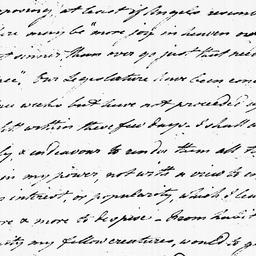 approving, at least if Angels
there may be "more joy in heaven
sinner, than over 99 just that need
Our Legislature have been
weeks but have not proceeded
within these few days. I shall
& endeavour to render them all
in my power, not with a view to
interest, or popularity, which I
more & more to despise. From
my fellow creatures, would to